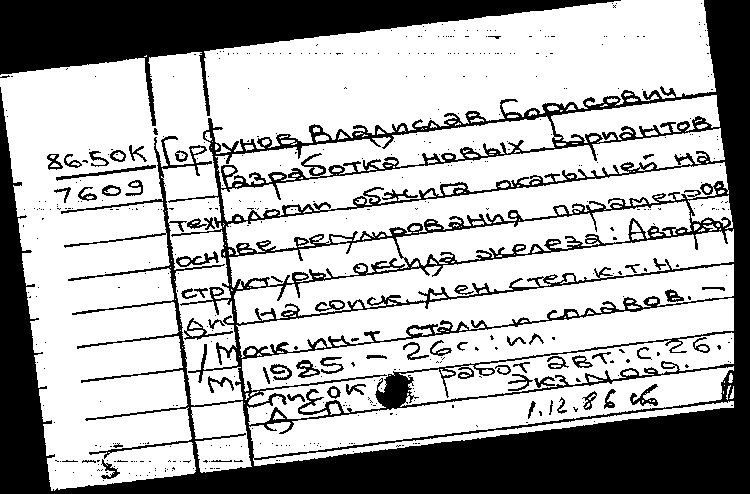 86-50К
7609
Горбунов, Владислав Борисович.
Разработка новых вариантов
технологии обжига окатышей на
основе регулирования параметров
структуры оксида железа: Автореф.
дис на соиск. учен. степ. к.т.н.
/Моск. ин-т стали и сплавов. –
М., 1985. – 26с.: ил.
Список работ авт.: с.26.
ДСП. Экз.N 099.
1.12.86